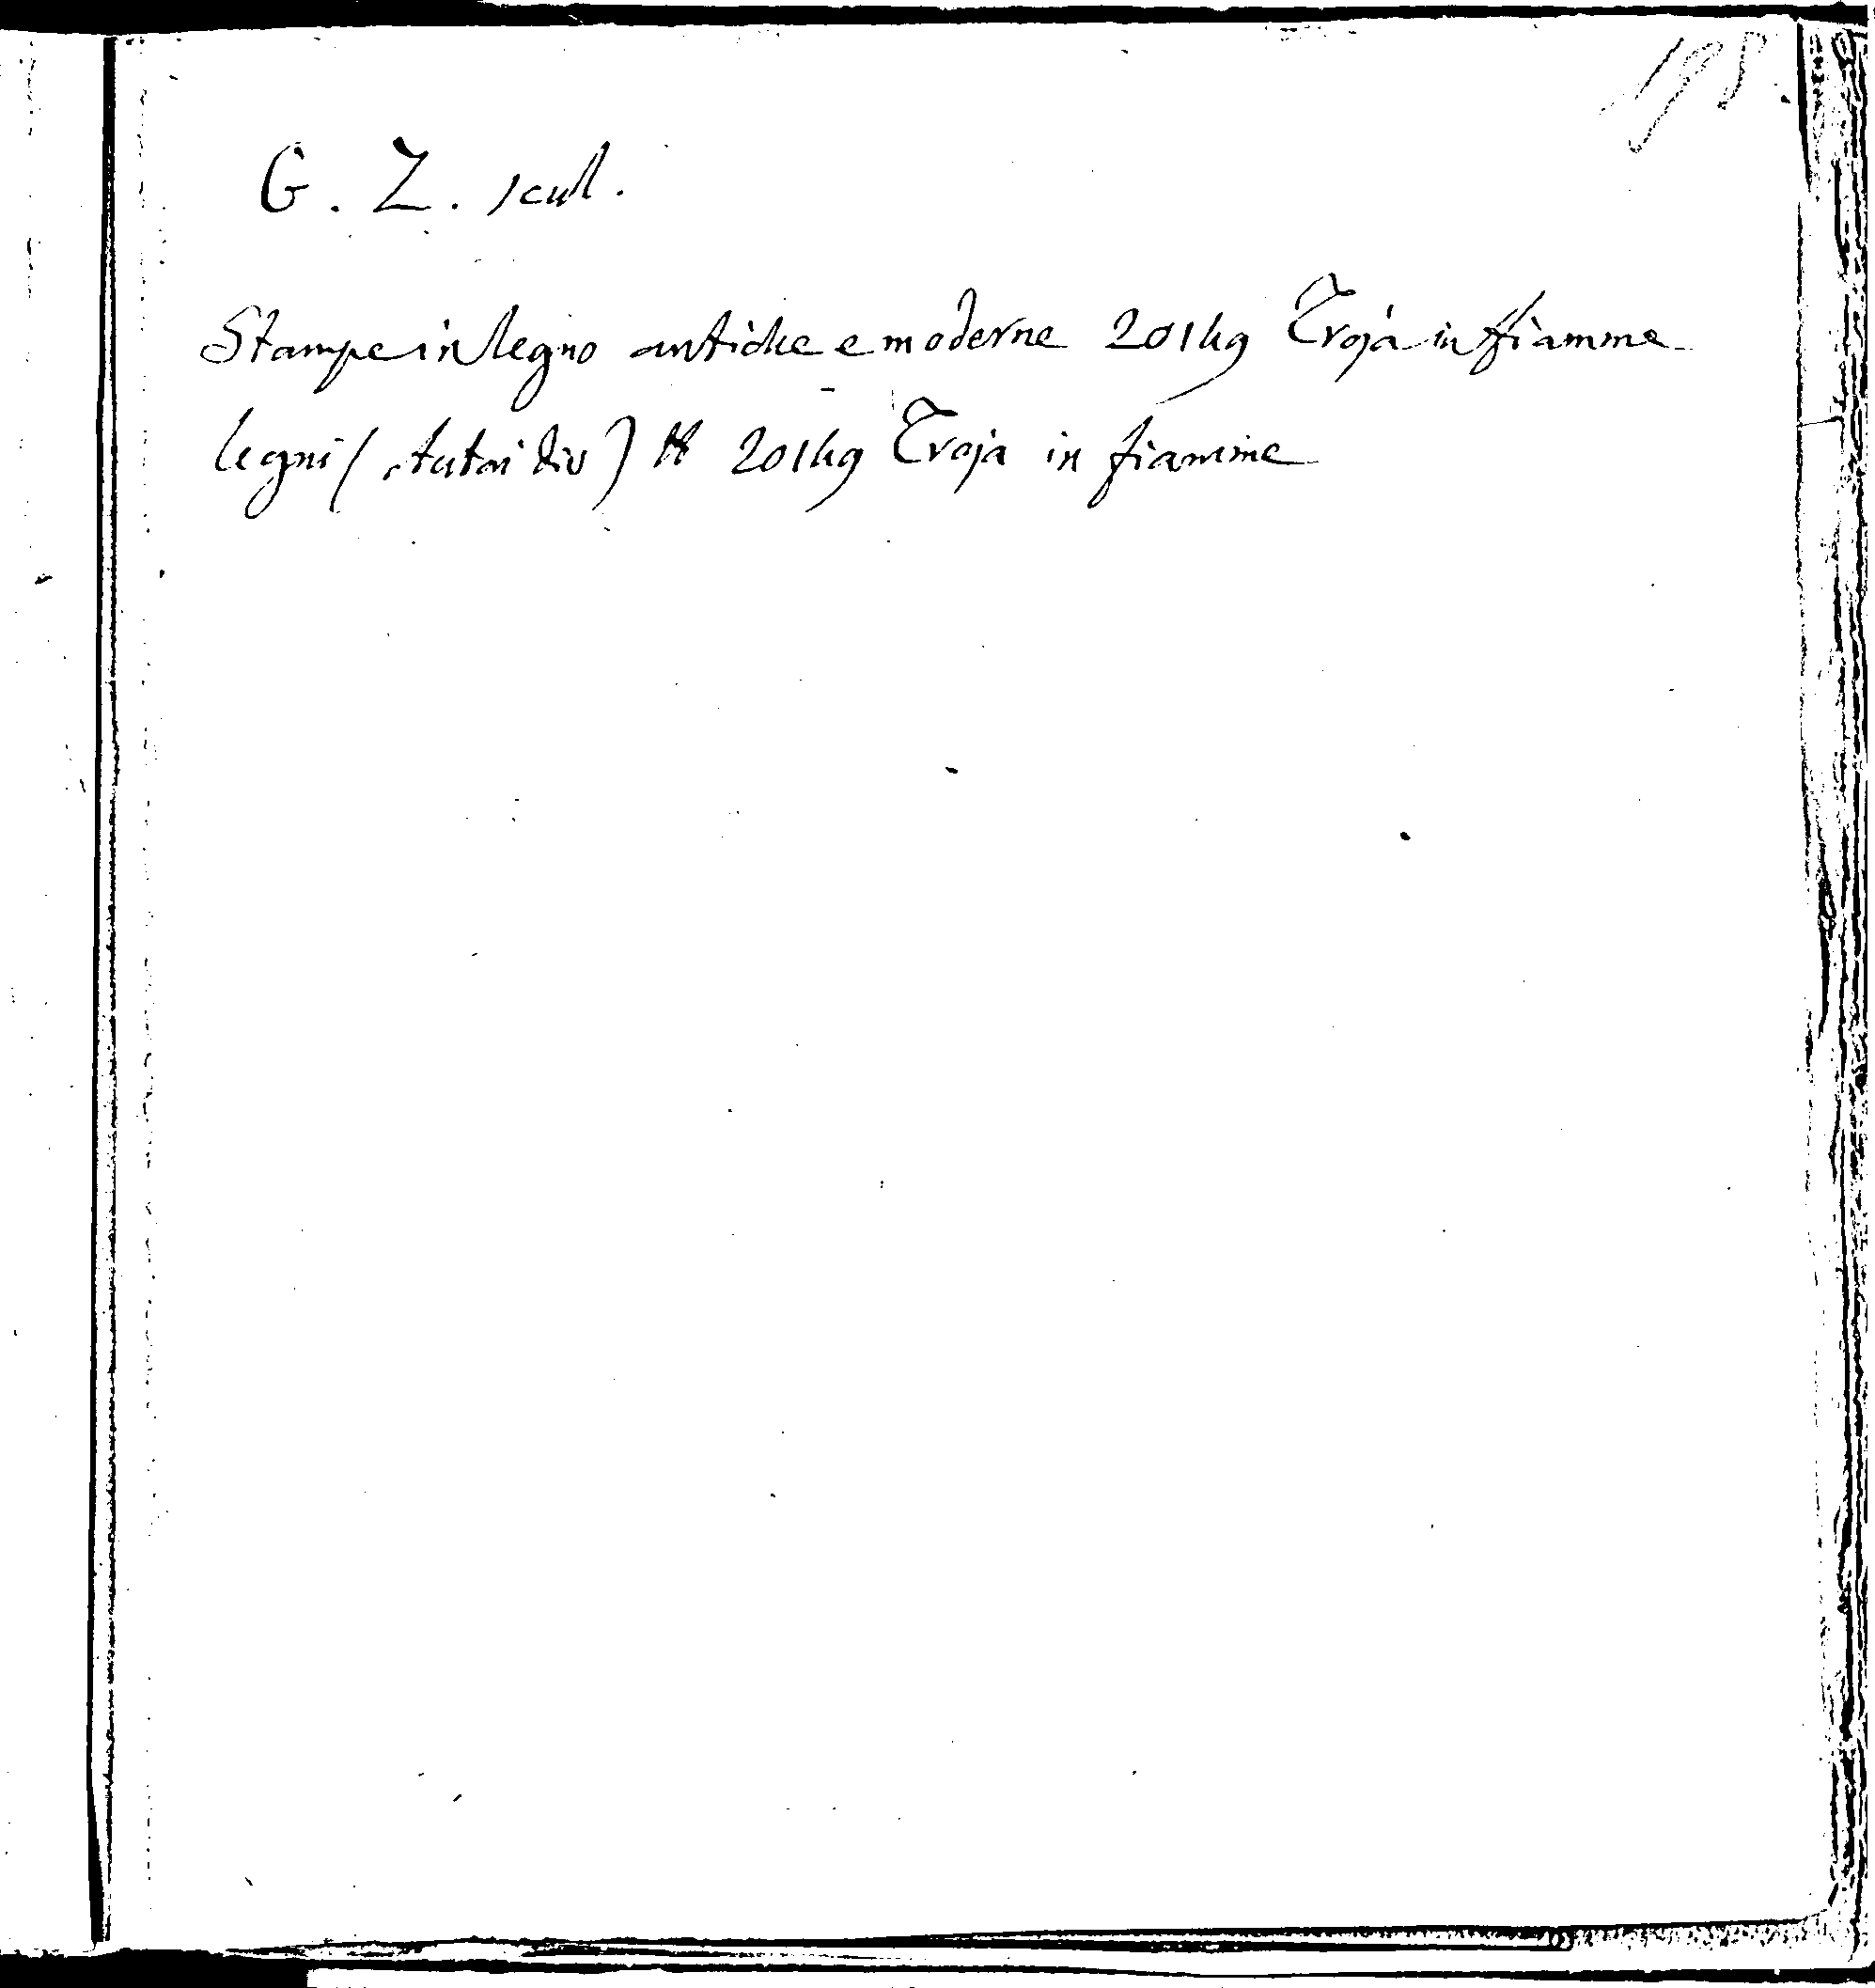 198.
G. Z. scul.
Stampe in legno antiche e moderne 20149 Troja in fiamme
legni (Autori div) H 20149 Troja in fiamme